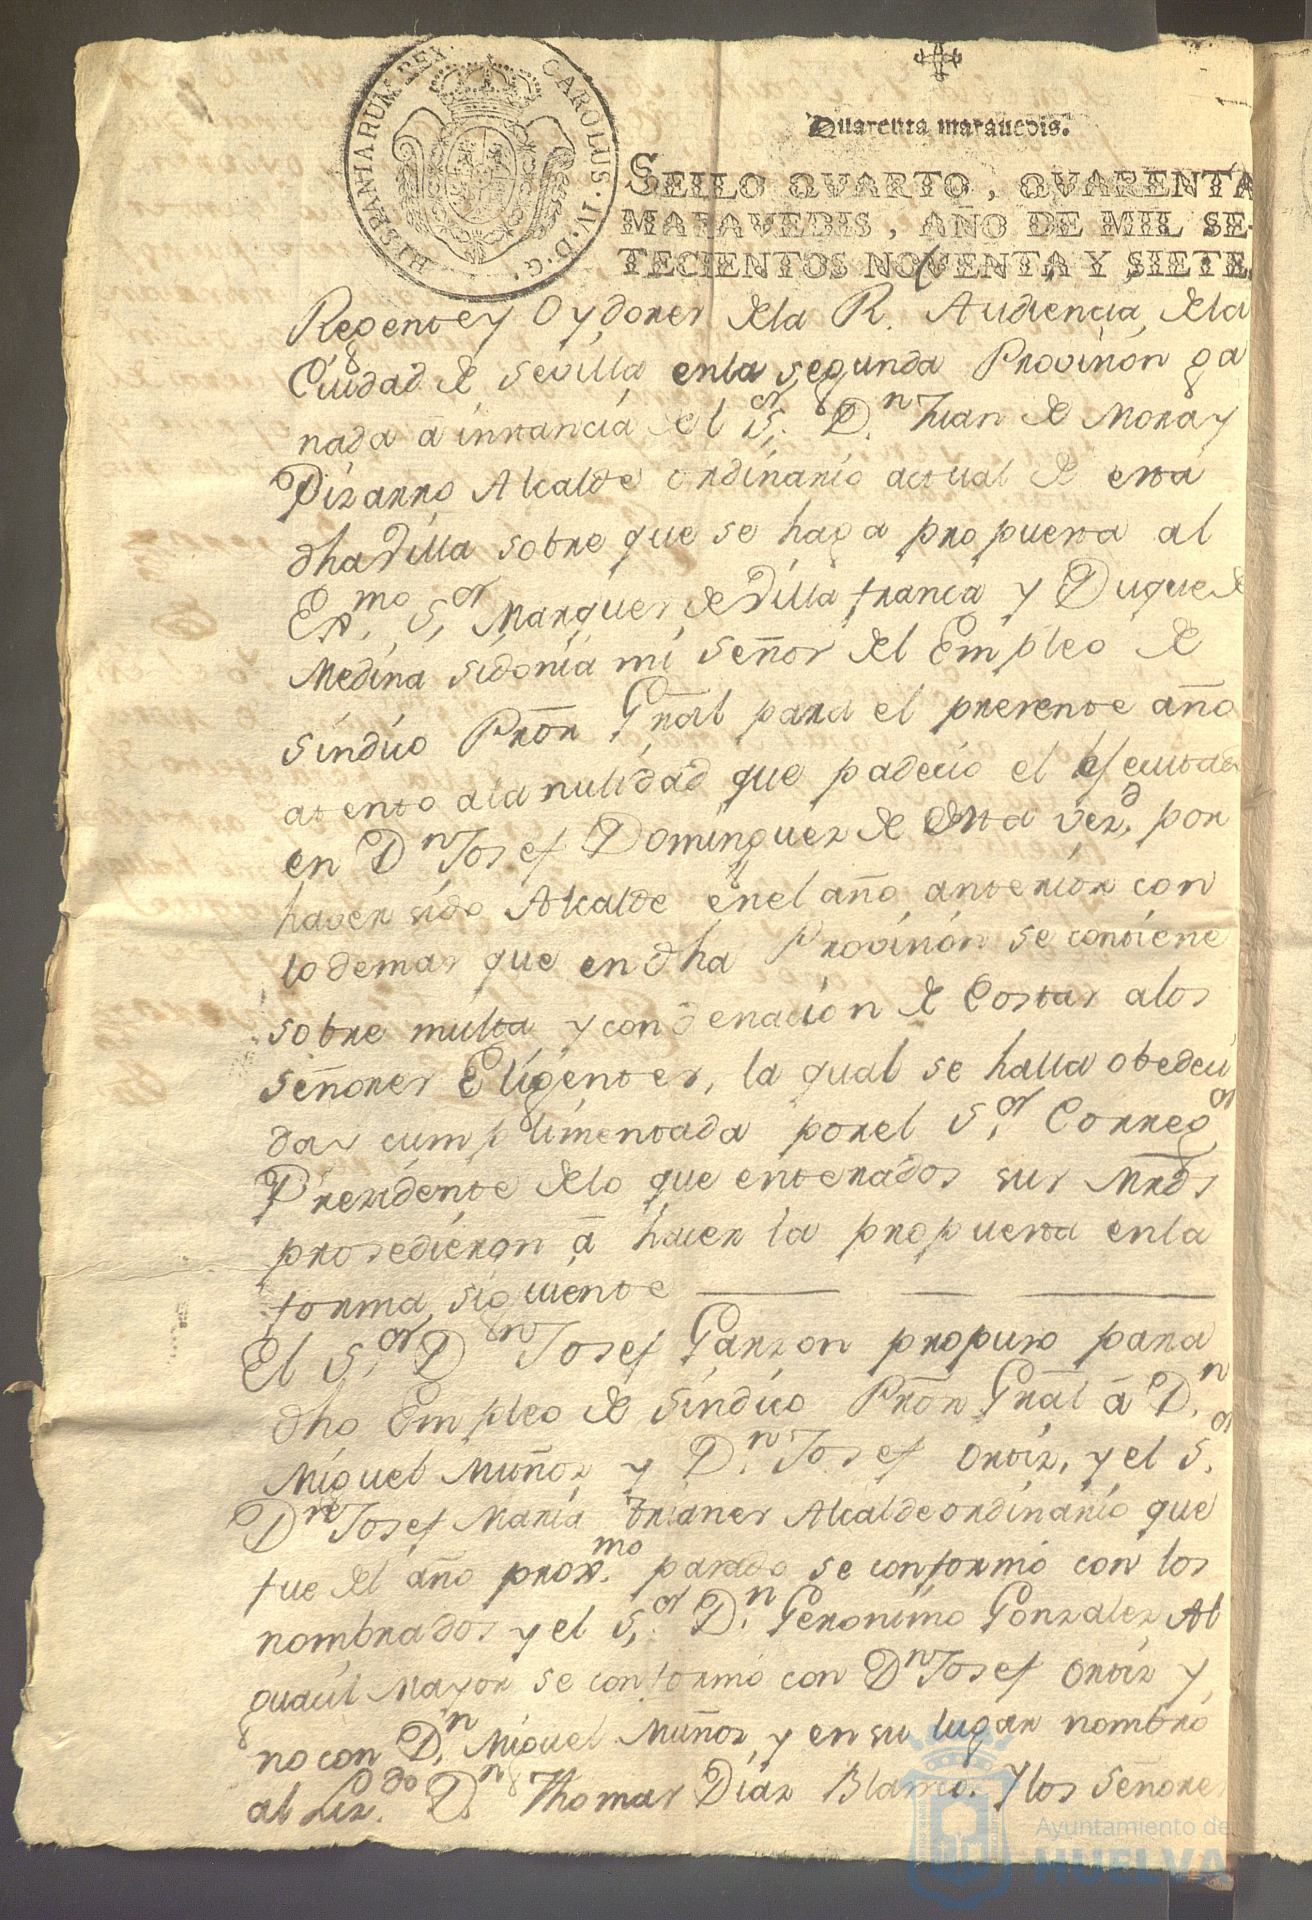 HISPANIARUM REX. CAROLUS. IV. D. G.
Quarenta maravedis.
SELLO QVARTO, QVARENTA
MARAVEDIS, AÑO DE MIL SE-
TECIENTOS NOVENTA Y SIETE.
Regente y Oydores dela R. Audiencia dela
Ciudad de Sevilla enla segunda Provision ga
nada â instancia del S.or D.n Juan de Mora y
Pizarro Alcalde ordinario actual de esta
dha Villa sobre que se haga propuesta al
Ex.mo S.or Marques de Villafranca y Duque de
Medina sidonia mi señor del Empleo de
Sindico Prōr Gral para el presente año
atento ala nulidad que padecio el efecutado
en D.n Josef Dominguez de esta vez.d por
haver sido Alcalde enel año anterior con
lo demas que en dha Provision se contiene
sobre multa y condenacion de Costas alos
señores Eligentes, la qual se halla obedeci
da y cumplimentada por el S.or Correg.or
Presidente delo que enterados sus Mrds
prosedieron â hacer la propuesta enla
forma siguiente
El S.or D.n Josef Garzon propuso para
dho Empleo de Sindico Prōr Gral â D.n
Miguel Muñoz y D.n Josef Ortiz, y el S.or
D.n Josef Maria Trianes Alcalde ordinario que
fue del año prox.mo pasado se conformó con los
nombrados y el S.or D.n Geronimo Gonzalez Al
guacil Mayor se conformó con D.n Josef Ortiz y
no con D.n Miguel Muñoz y en su lugar nombró
al Liz.do D.n Thomas Diaz Blanco. Y los Señores
Ayuntamiento de
HUELVA